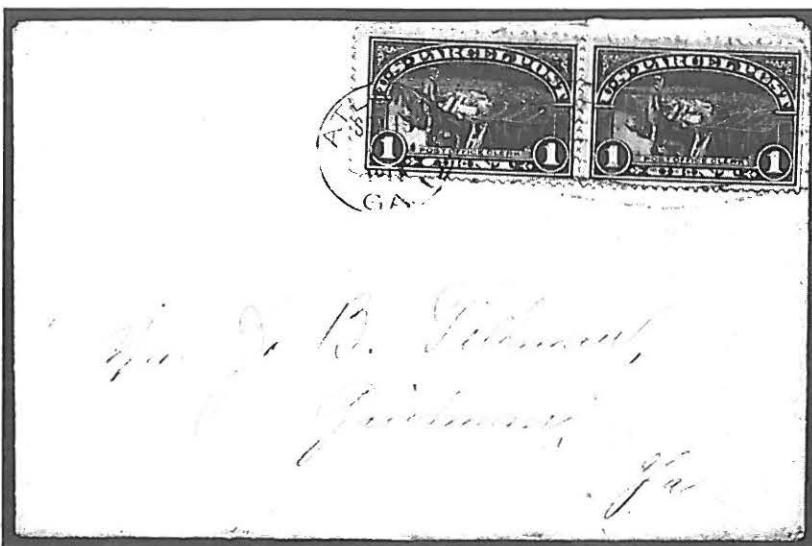 U.S. PARCEL POST
1 POST OFFICE CLERK 1
CENT
U.S. PARCEL POST
1 POST OFFICE CLERK 1
CENT
GA
J. B. Tillman,
Ga